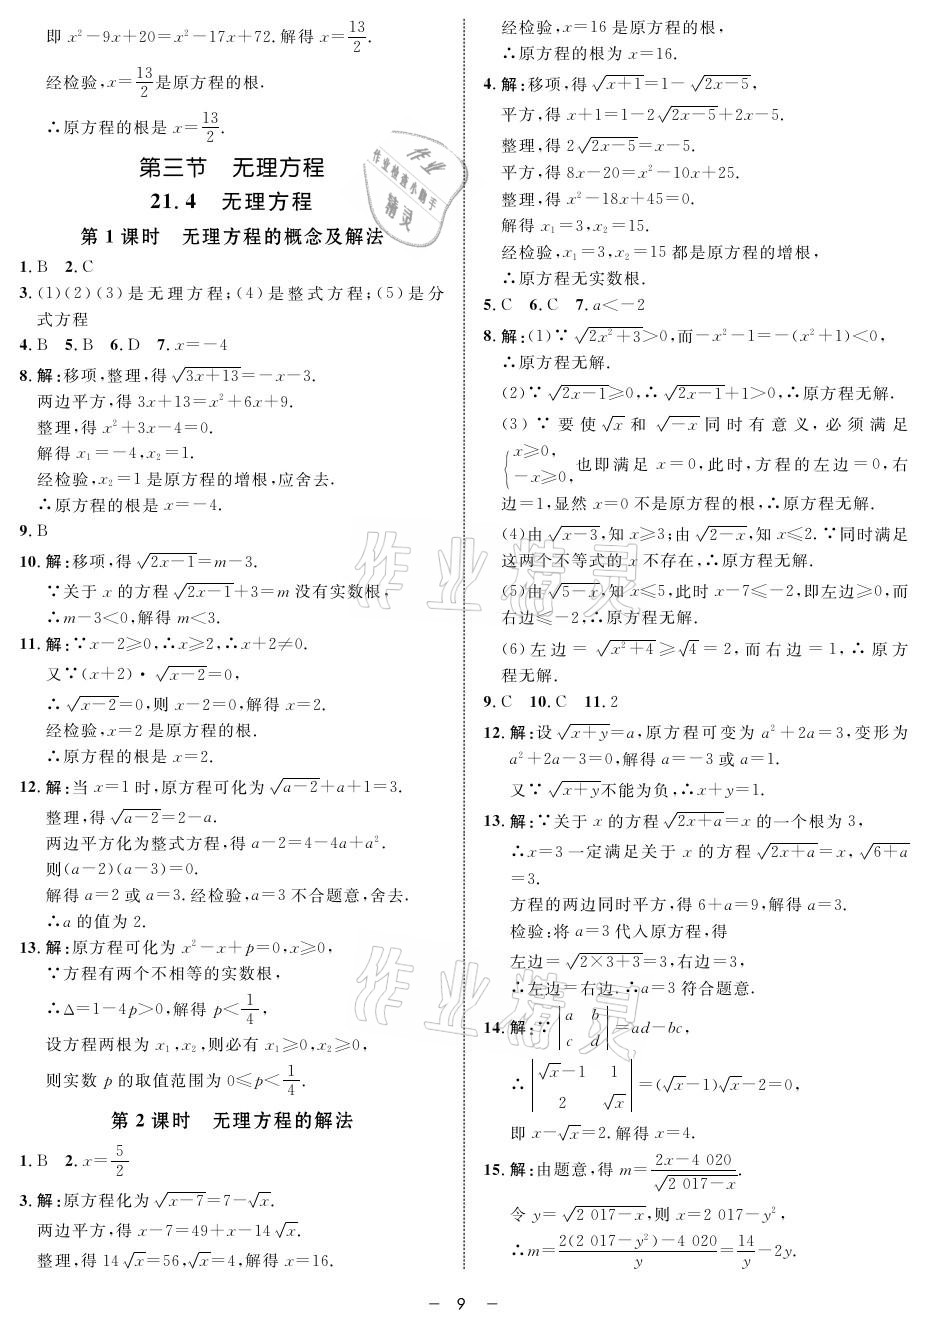 即 x²－9x＋20＝x²－17x＋72.解得 x＝13/2.
经检验,x＝13/2是原方程的根.
∴原方程的根是 x＝13/2.
第三节　无理方程
21.4　无理方程
第 1 课时　无理方程的概念及解法
1.B　2.C
3.(1)(2)(3)是无理方程;(4)是整式方程;(5)是分
式方程
4.B　5.B　6.D　7.x＝－4
8.解:移项,整理,得√(3x＋13)＝－x－3.
两边平方,得 3x＋13＝x²＋6x＋9.
整理,得 x²＋3x－4＝0.
解得 x₁＝－4,x₂＝1.
经检验,x₂＝1 是原方程的增根,应舍去.
∴原方程的根是 x＝－4.
9.B
10.解:移项,得√(2x－1)＝m－3.
∵关于 x 的方程√(2x－1)＋3＝m 没有实数根,
∴m－3＜0,解得 m＜3.
11.解:∵x－2≥0,∴x≥2,∴x＋2≠0.
又∵(x＋2)·√(x－2)＝0,
∴√(x－2)＝0,则 x－2＝0,解得 x＝2.
经检验,x＝2 是原方程的根.
∴原方程的根是 x＝2.
12.解:当 x＝1 时,原方程可化为√(a－2)＋a＋1＝3.
整理,得√(a－2)＝2－a.
两边平方化为整式方程,得 a－2＝4－4a＋a².
则(a－2)(a－3)＝0.
解得 a＝2 或 a＝3.经检验,a＝3 不合题意,舍去.
∴a 的值为 2.
13.解:原方程可化为 x²－x＋p＝0,x≥0,
∵方程有两个不相等的实数根,
∴Δ＝1－4p＞0,解得 p＜1/4,
设方程两根为 x₁,x₂,则必有 x₁≥0,x₂≥0,
则实数 p 的取值范围为 0≤p＜1/4.
第 2 课时　无理方程的解法
1.B　2.x＝5/2
3.解:原方程化为√(x－7)＝7－√x.
两边平方,得 x－7＝49＋x－14√x.
整理,得 14√x＝56,√x＝4,解得 x＝16.
经检验,x＝16 是原方程的根,
∴原方程的根为 x＝16.
4.解:移项,得√(x＋1)＝1－√(2x－5),
平方,得 x＋1＝1－2√(2x－5)＋2x－5.
整理,得 2√(2x－5)＝x－5.
平方,得 8x－20＝x²－10x＋25.
整理,得 x²－18x＋45＝0.
解得 x₁＝3,x₂＝15.
经检验,x₁＝3,x₂＝15 都是原方程的增根,
∴原方程无实数根.
5.C　6.C　7.a＜－2
8.解:(1)∵√(2x²＋3)＞0,而－x²－1＝－(x²＋1)＜0,
∴原方程无解.
(2)∵√(2x－1)≥0,∴√(2x－1)＋1＞0,∴原方程无解.
(3)∵要使√x 和√(－x)同时有意义,必须满足
{x≥0,－x≥0,也即满足 x＝0,此时,方程的左边＝0,右
边＝1,显然 x＝0 不是原方程的根,∴原方程无解.
(4)由√(x－3),知 x≥3;由√(2－x),知 x≤2.∵同时满足
这两个不等式的 x 不存在,∴原方程无解.
(5)由√(5－x),知 x≤5,此时 x－7≤－2,即左边≥0,而
右边≤－2,∴原方程无解.
(6)左边＝√(x²＋4)≥√4＝2,而右边＝1,∴原方
程无解.
9.C　10.C　11.2
12.解:设√(x＋y)＝a,原方程可变为 a²＋2a＝3,变形为
a²＋2a－3＝0,解得 a＝－3 或 a＝1.
又∵√(x＋y)不能为负,∴x＋y＝1.
13.解:∵关于 x 的方程√(2x＋a)＝x 的一个根为 3,
∴x＝3 一定满足关于 x 的方程√(2x＋a)＝x,√(6＋a)
＝3.
方程的两边同时平方,得 6＋a＝9,解得 a＝3.
检验:将 a＝3 代入原方程,得
左边＝√(2×3＋3)＝3,右边＝3,
∴左边＝右边.∴a＝3 符合题意.
14.解:∵|a b; c d|＝ad－bc,
∴|√x－1 1; 2 √x|＝(√x－1)√x－2＝0,
即 x－√x＝2.解得 x＝4.
15.解:由题意,得 m＝(2x－4 020)/√(2 017－x).
令 y＝√(2 017－x),则 x＝2 017－y²,
∴m＝(2(2 017－y²)－4 020)/y＝14/y－2y.
－ 9 －
作业
作业检查小助手
精灵
作业精灵
作业精灵